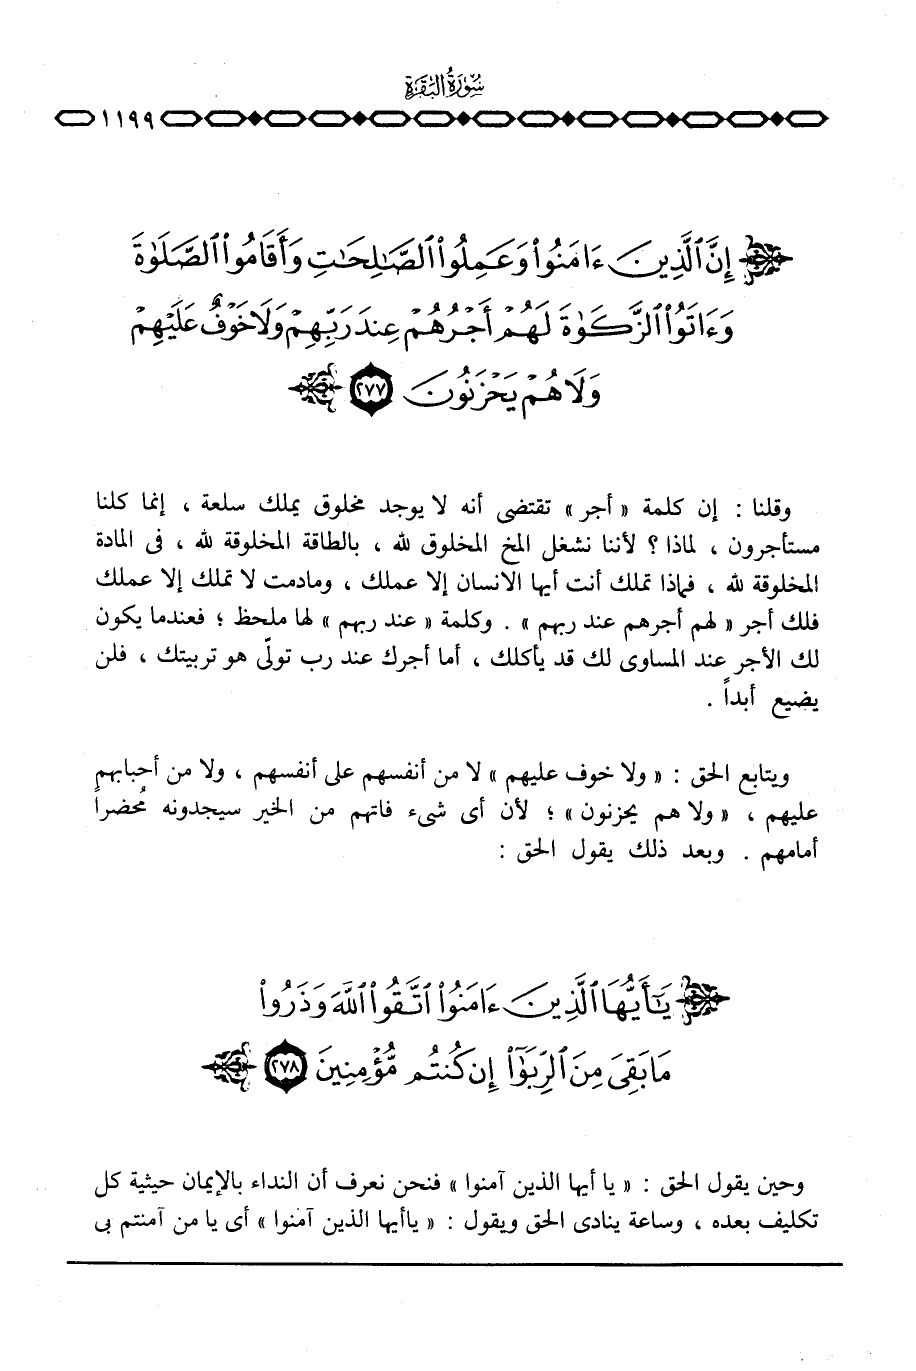 سُورَةُ البَقَرَةِ
١١٩٩
إِنَّ ٱلَّذِينَ ءَامَنُوا۟ وَعَمِلُوا۟ ٱلصَّٰلِحَٰتِ وَأَقَامُوا۟ ٱلصَّلَوٰةَ
وَءَاتَوُا۟ ٱلزَّكَوٰةَ لَهُمْ أَجْرُهُمْ عِندَ رَبِّهِمْ وَلَا خَوْفٌ عَلَيْهِمْ
وَلَا هُمْ يَحْزَنُونَ ٢٧٧
وقلنا : إن كلمة « أجر » تقتضى أنه لا يوجد مخلوق يملك سلعة ، إنما كلنا
مستأجرون ، لماذا ؟ لأننا نشغل المخ المخلوق لله ، بالطاقة المخلوقة لله ، فى المادة
المخلوقة لله ، فماذا تملك أنت أيها الانسان إلا عملك ، ومادمت لا تملك إلا عملك
فلك أجر « لهم أجرهم عند ربهم » . وكلمة « عند ربهم » لها ملحظ ؛ فعندما يكون
لك الأجر عند المساوى لك قد يأكلك ، أما أجرك عند رب تولّى هو تربيتك ، فلن
يضيع أبداً .
ويتابع الحق : « ولا خوف عليهم » لا من أنفسهم على أنفسهم ، ولا من أحبابهم
عليهم ، « ولا هم يحزنون » ؛ لأن أى شىء فاتهم من الخير سيجدونه مُحضراً
أمامهم . وبعد ذلك يقول الحق :
يَٰٓأَيُّهَا ٱلَّذِينَ ءَامَنُوا۟ ٱتَّقُوا۟ ٱللَّهَ وَذَرُوا۟
مَا بَقِىَ مِنَ ٱلرِّبَوٰٓا۟ إِن كُنتُم مُّؤْمِنِينَ ٢٧٨
وحين يقول الحق : « يا أيها الذين آمنوا » فنحن نعرف أن النداء بالإيمان حيثية كل
تكليف بعده ، وساعة ينادى الحق ويقول : « ياأيها الذين آمنوا » أى يا من آمنتم بى